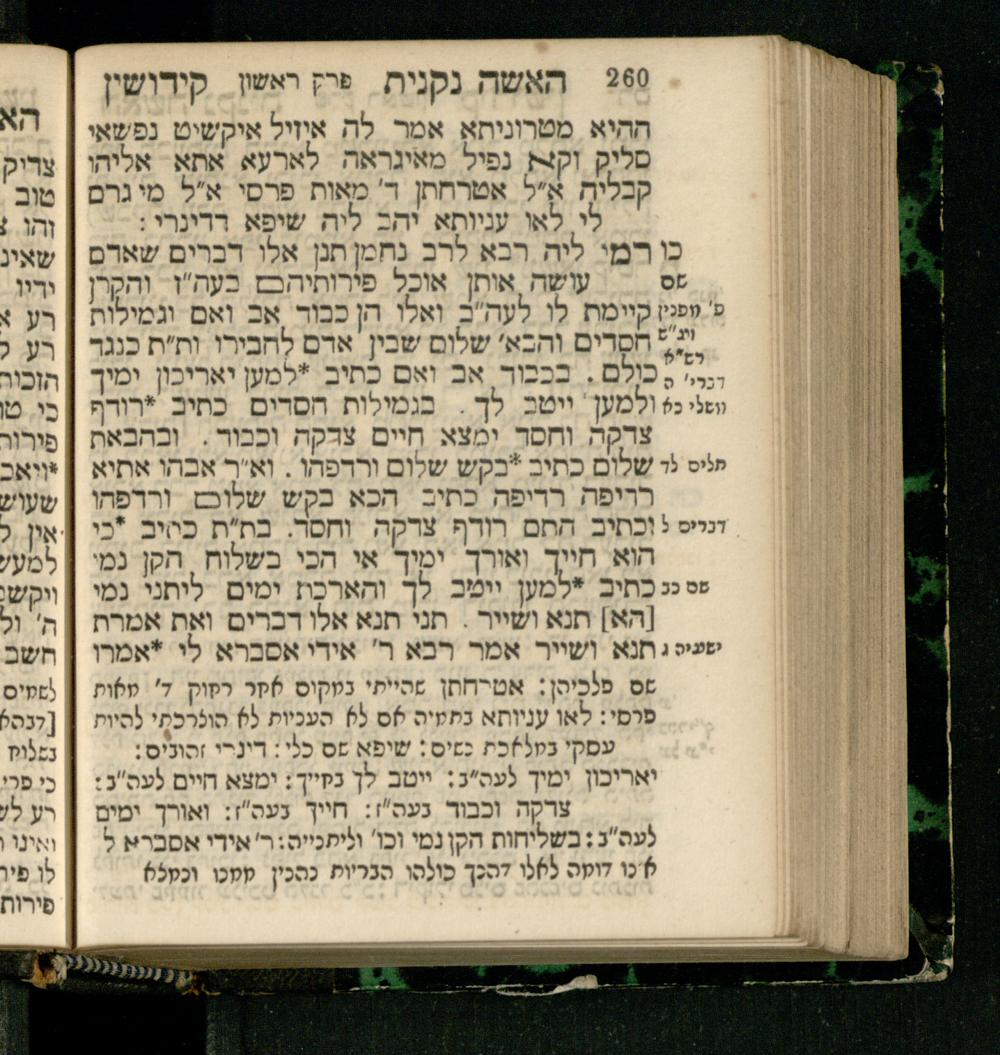 260 האשה נקנית פרק ראשון קידושין
ההיא מטרוניתא אמר לה איזיל איקשיט נפשאי
סליק וקא נפיל מאיגראה לארעא אתא אליהו
קבליה א״ל אטרחתן ד' מאות פרסי א״ל מי גרם
לי לאו עניותא יהב ליה שיפא דדינרי :
כו רמי ליה רבא לרב נחמן תנן אלו דברים שאדם
שם עושה אותן אוכל פירותיהם בעה"ז והקרן
פ' מפנין קיימת לו לעה"ב ואלו הן כבוד אב ואם וגמילות
חסדים והבא' שלום שבין אדם לחבירו ות״ת כנגד
כולם . בכבוד אב ואם כתיב *למען יאריכון ימיך
דברי' ה ולמען ייטב לך . בגמילות חסדים כתיב *רודף
משלי כא
צדקה וחסד ימצא חיים צדקה וכבוד . ובהבאת
תלים לד שלום כתיב *בקש שלום ורדפהו . וא״ר אבהו אתיא
רדיפה רדיפה כתיב הכא בקש שלום ורדפהו
דברים ל וכתיב התם רודף צדקה וחסד. בת״ת כתיב *כי
הוא חייך ואורך ימיך אי הכי בשלוח הקן נמי
שם כב כתיב *למען ייטב לך והארכת ימים ליתני נמי
[הא] תנא ושייר . תני תנא אלו דברים ואת אמרת
ישעיה ג תנא ושייר אמר רבא ר' אידי אסברא לי *אמרו
שם פלכיהן: אטרחתן שהייתי במקום אחר רחוק ד' מאות
פרסי: לאו עניותא בתמיה אם לא העניות לא הוצרכתי להיות
עסקי במלאכת נשים: שיפא שם כלי: דינרי זהובים:
יאריכון ימיך לעה"ב: ייטב לך בחייך: ימצא חיים לעה"ב:
צדקה וכבוד בעה"ז: חייך בעה"ז: ואורך ימים
לעה"ב: בשליחות הקן נמי וכו' וליתנייה: ר' אידי אסברא ל
דומה לאלו דהנך כולהו הבריות נהנין ממנו ונמצא
הא
צדיק
טוב
זהו
שאינ
ידיו
רע
רע
הזכות
כי
פירות
*ויאכ
שעוש
אין
למעש
ויקש
ה'
חשב
לשמים
[דבהא
בשלוח
כי פרי
רע לש
ואינו
לו פיר
פירות